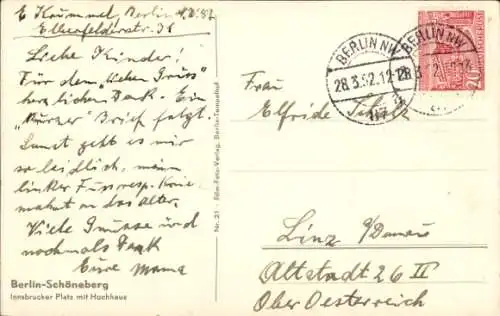 E Krummel, Berlin
Elberfelderstr. 38
Liebe Kinder!
Für den "lieben Gruss"
herzlichen Dank. Ein
"kurzer" Brief folgt.
Sonst geht es mir
so leidlich, mein
linker Fuss resp. Knie
mahnt an das Alter.
Viele Grüsse und
nochmals Dank
Eure Mama
Berlin-Schöneberg
Innsbrucker Platz mit Hochhaus
Nr. 21 · Film-Foto-Verlag, Berlin-Tempelhof
BERLIN NW
28.3.52.12
BERLIN NW
20
Frau
Elfride
Linz a/Donau
Altstadt 26 II
Ober Oesterreich